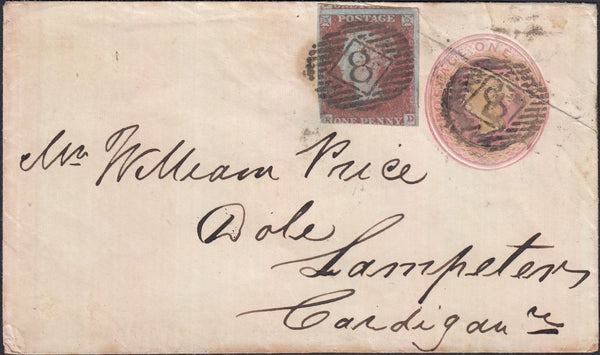 POSTAGE
8
ONE PENNY
ONE
8
Mr William Price
Dole
Lampeter
Cardigan re